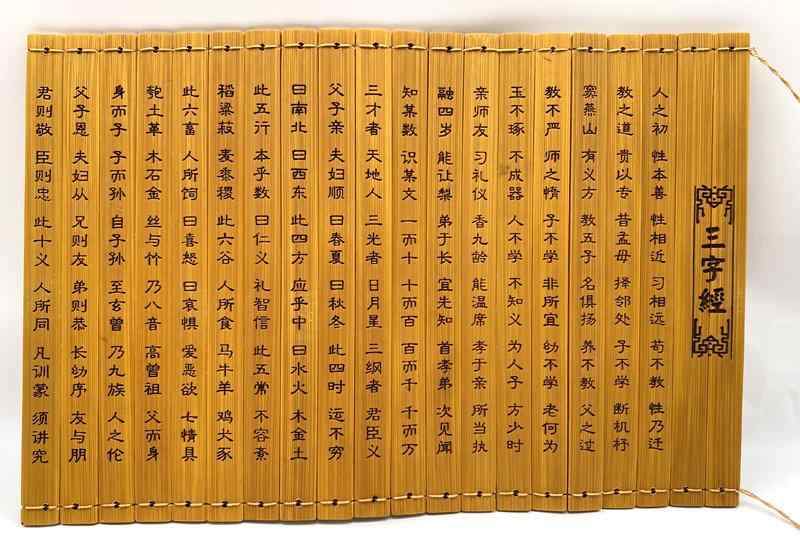 三字經
人之初 性本善 性相近 习相远 苟不教 性乃迁
教之道 贵以专 昔孟母 择邻处 子不学 断机杼
窦燕山 有义方 教五子 名俱扬 养不教 父之过
教不严 师之惰 子不学 非所宜 幼不学 老何为
玉不琢 不成器 人不学 不知义 为人子 方少时
亲师友 习礼仪 香九龄 能温席 孝于亲 所当执
融四岁 能让梨 弟于长 宜先知 首孝弟 次见闻
知某数 识某文 一而十 十而百 百而千 千而万
三才者 天地人 三光者 日月星 三纲者 君臣义
父子亲 夫妇顺 曰春夏 曰秋冬 此四时 运不穷
曰南北 曰西东 此四方 应乎中 曰水火 木金土
此五行 本乎数 曰仁义 礼智信 此五常 不容紊
稻粱菽 麦黍稷 此六谷 人所食 马牛羊 鸡犬豕
此六畜 人所饲 曰喜怒 曰哀惧 爱恶欲 七情具
匏土革 木石金 丝与竹 乃八音 高曾祖 父而身
身而子 子而孙 自子孙 至玄曾 乃九族 人之伦
父子恩 夫妇从 兄则友 弟则恭 长幼序 友与朋
君则敬 臣则忠 此十义 人所同 凡训蒙 须讲究